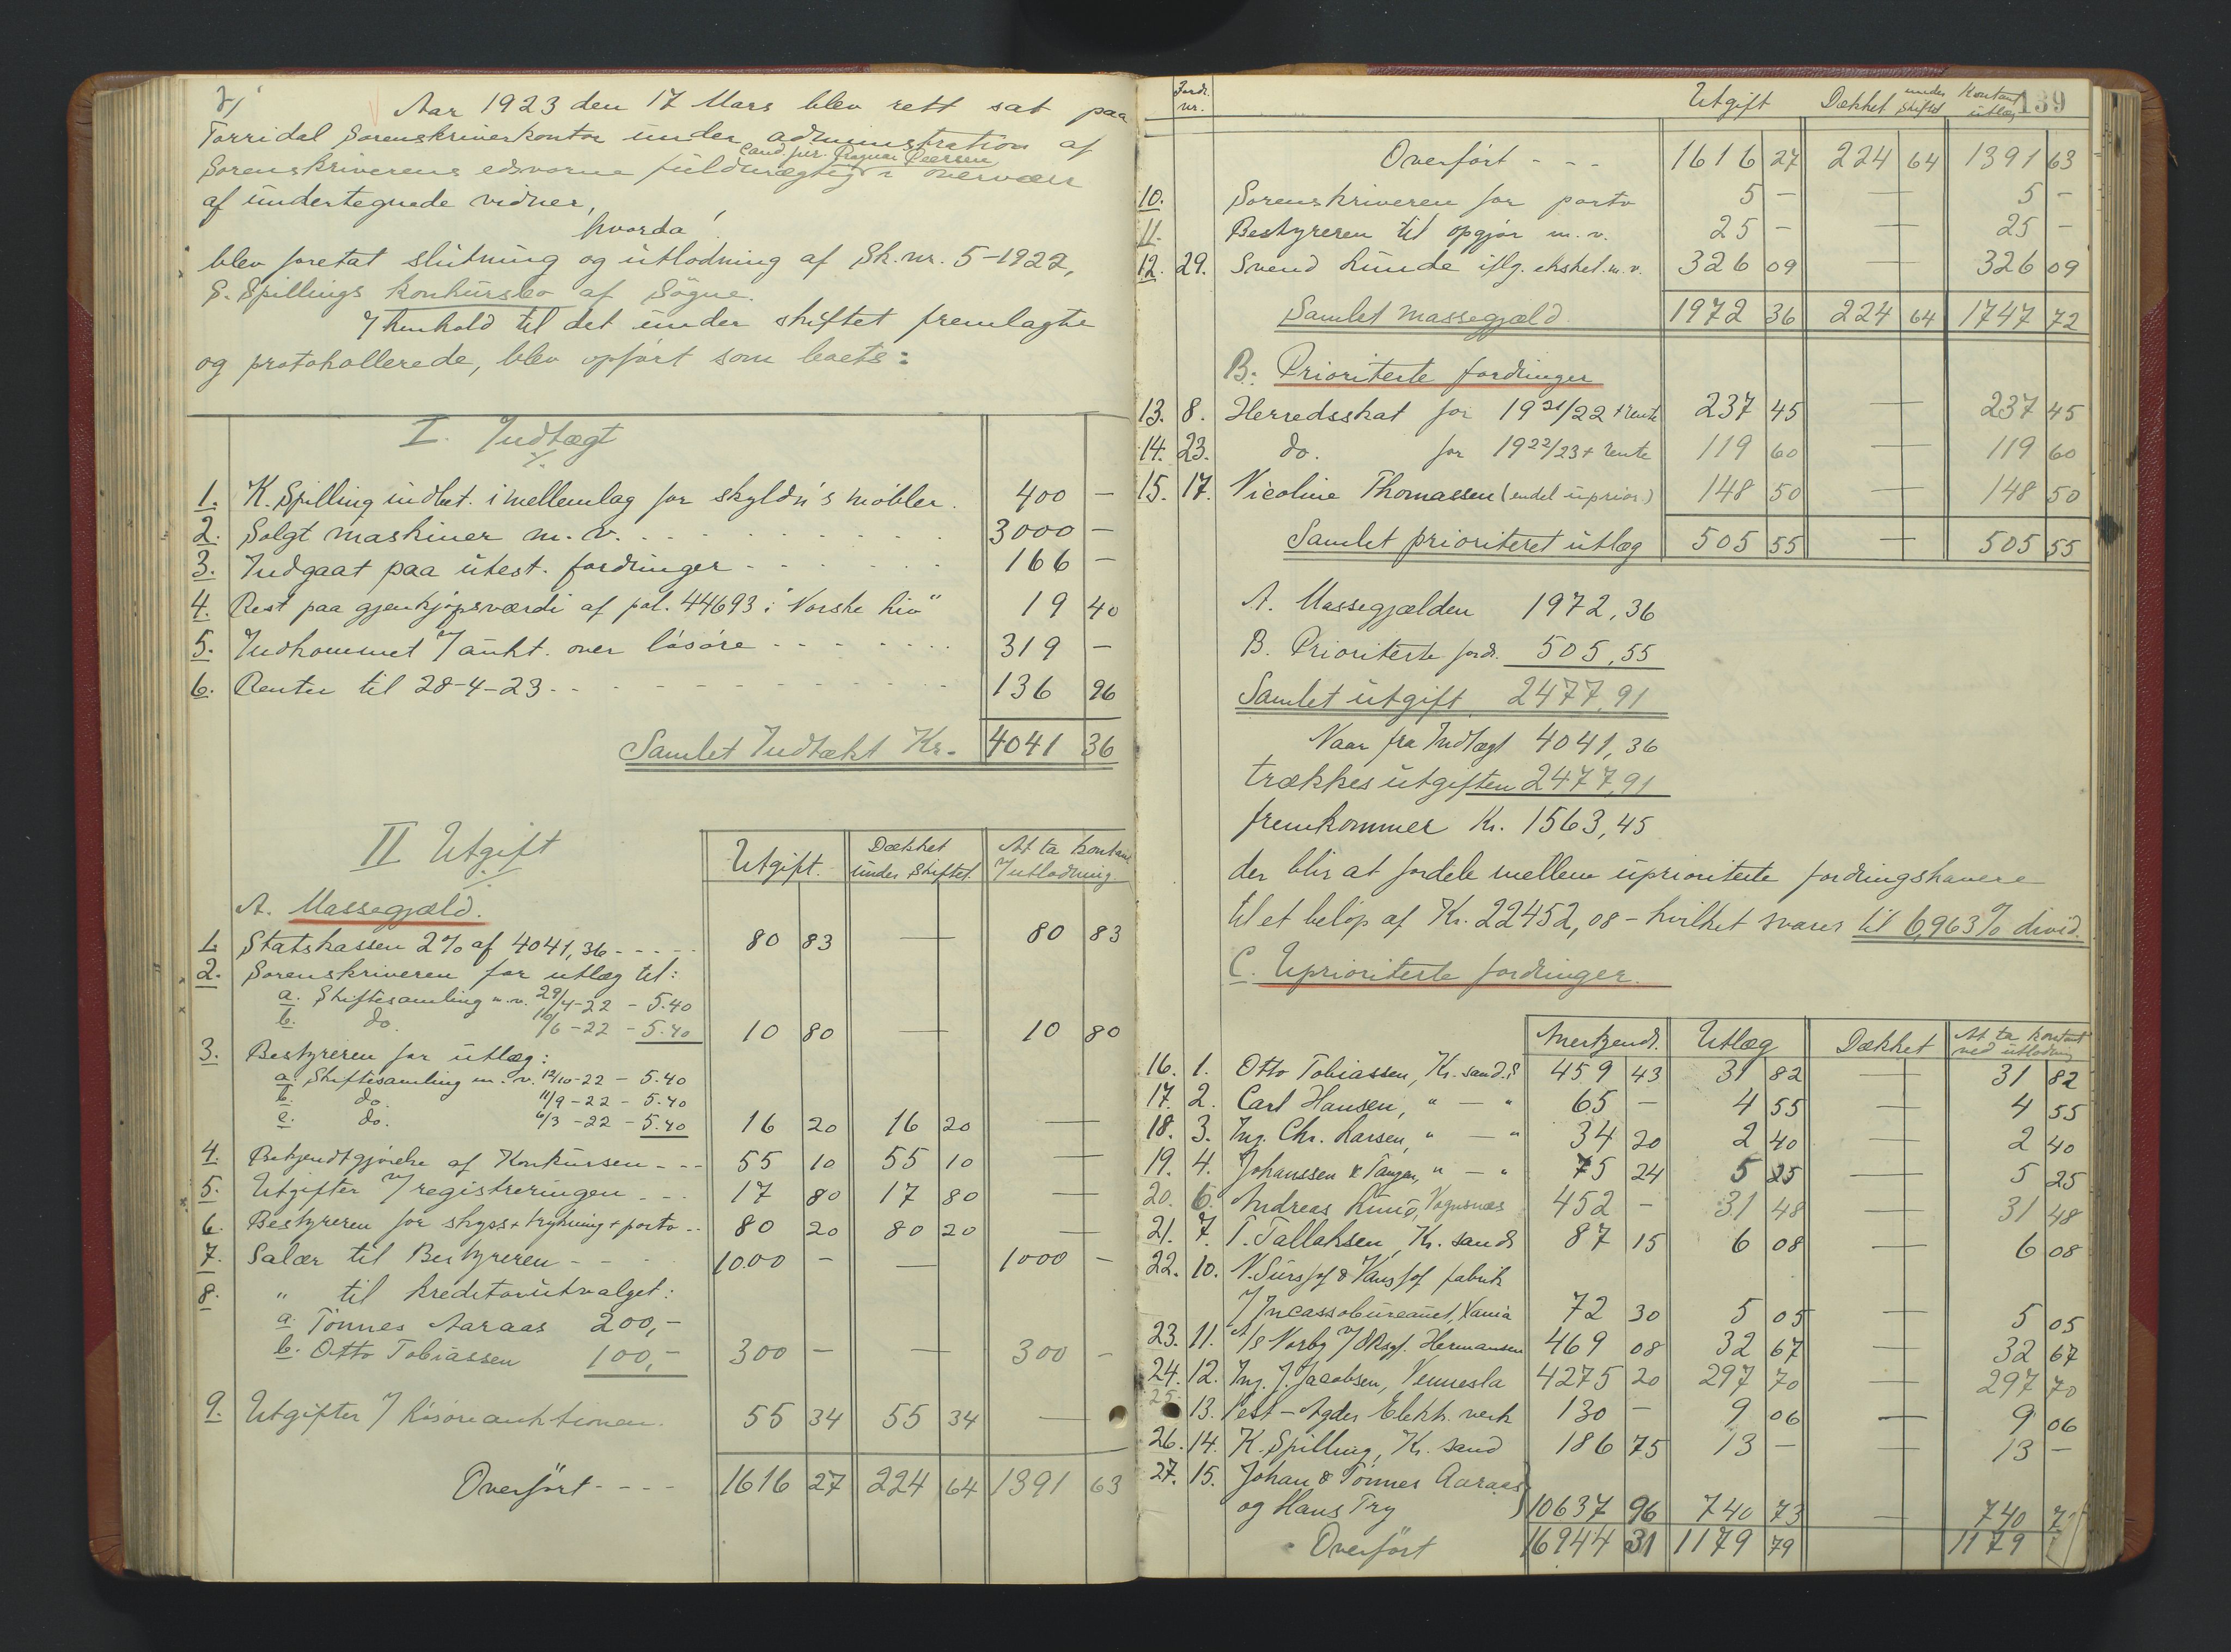 Aar 1923 den 17 Mars blev rett sat paa
Torridal Sorenskriverkontor under administration af
cand jur. Ragnar Peersen
Sorenskriverens edsvorne fuldmægtig i overvær
af undertegnede vidner,
hvorda
blev foretat slutning og utlodning af Sk. nr. 5-1922,
S. Spillings konkursbo af Søgne.
I henhold til det under skiftet fremlagte
og protokollerede, blev opført som boets:
I. Indtægt
1. K. Spilling indbet. i mellemlag for skyldn's møbler. 400 —
2. Solgt maskiner m. v. 3000 —
3. Indgaat paa utest. fordringer 166 —
4. Rest paa gjenkjøpsværdi af pol. 44693 i "Norske Liv" 19 40
5. Indkommet v/ aukt. over løsøre 319 —
6. Renter til 28-4-23 136 96
Samlet Indtækt Kr. 4041 36
II Utgift
Utgift. Dækket under skiftet. At ta kontant v/utlodning.
A. Massegjæld.
1. Statskassen 2% af 4041,36 80 83 — 80 83
2. Sorenskriveren for utlæg til:
a. Skiftesamling m. v. 29/4-22 - 5.40
b. do. 10/6-22 - 5.40 10 80 — 10 80
3. Bestyreren for utlæg:
a. Skiftesamling m. v. 12/10-22 - 5.40
b. do. 11/9-22 - 5.40
c. do. 6/3-22 - 5.40 16 20 16 20 —
4. Bekjendtgjørelse af Konkursen 55 10 55 10 —
5. Utgifter v/ registreringen 17 80 17 80 —
6. Bestyreren for skyss + trykning + porto 80 20 80 20 —
7. Salær til Bestyreren 1000 — — 1000 —
8. " til kreditorutvalget:
a. Tönnes Aaraas 200,-
b. Otto Tobiassen 100,- 300 — — 300 —
9. Utgifter v/ løsøreauktionen. 55 34 55 34 —
Overført 1616 27 224 64 1391 63
139
Fordr. nr. Utgift Dækket under skiftet Kontant utlæg
Overført 1616 27 224 64 1391 63
10. Sorenskriveren for porto 5 — — 5 —
11. Bestyreren til opgjør m. v. 25 — — 25 —
12. 29. Svend Lunde iflg. ekstret. m. v. 326 09 326 09
Samlet massegjæld. 1972 36 224 64 1747 72
B. Prioriterte fordringer
13. 8. Herredsskat for 1921/22 + rente 237 45 — 237 45
14. 23. do. for 1922/23 + rente 119 60 — 119 60
15. 17. Nicoline Thomassen (endel uprior.) 148 50 — 148 50
Samlet prioriteret utlæg 505 55 — 505 55
A. Massegjælden 1972,36
B. Prioriterte fordr. 505,55
Samlet utgift 2477,91
Naar fra Indtægt 4041,36
trækkes utgiften 2477,91
fremkommer Kr. 1563,45
der blir at fordele mellem uprioriterte fordringshavere
til et beløp af Kr. 22452,08 - hvilket svarer til 6,963% divid.
C. Uprioriterte fordringer.
Anerkjendt. Utlæg Dækket At ta kontant ved utlodning
16. 1. Otto Tobiassen, Kr. sand. S 459 43 31 82 — 31 82
17. 2. Carl Hansen, " — " 65 — 4 55 — 4 55
18. 3. Ing. Chr. Larsen, " — " 34 20 2 40 — 2 40
19. 4. Johanssen & Tangen, " — " 75 24 5 25 — 5 25
20. 6. Andreas Lund, 452 — 31 48 — 31 48
21. 7. T. Tallaksen, Kr. sand S 87 15 6 08 — 6 08
22. 10. fabrik
v/ Incassobureauet, Xania 72 30 5 05 — 5 05
23. 11. A/S Norby v/ Hermansen 469 08 32 67 — 32 67
24. 12. Ing. J. Jacobsen, Vennesla 4275 20 297 70 — 297 70
25. 13. Vest-Agder Elektr. verk 130 — 9 06 — 9 06
26. 14. K. Spilling, Kr. sand 186 75 13 — — 13 —
27. 15. Johan & Tönnes Aaraas
og Hans Try 10637 96 740 73 — 740
Overført 16944 31 1179 79 1179